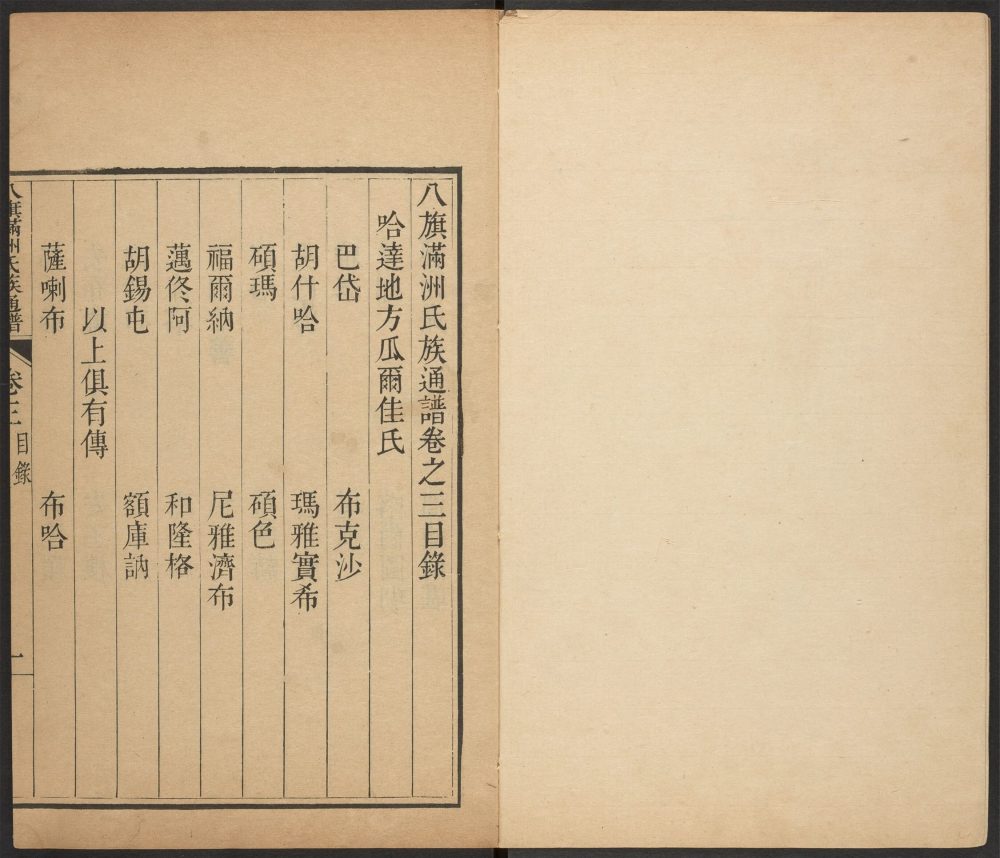 八旗滿洲氏族通譜卷之三目錄
哈達地方瓜爾佳氏
巴岱 布克沙
胡什哈 瑪雅實希
碩瑪 碩色
福爾納 尼雅濟布
邁佟阿 和隆格
胡錫屯 額庫訥
以上俱有傳
薩喇布 布哈
八旗滿洲氏族通譜 卷三 目錄 一